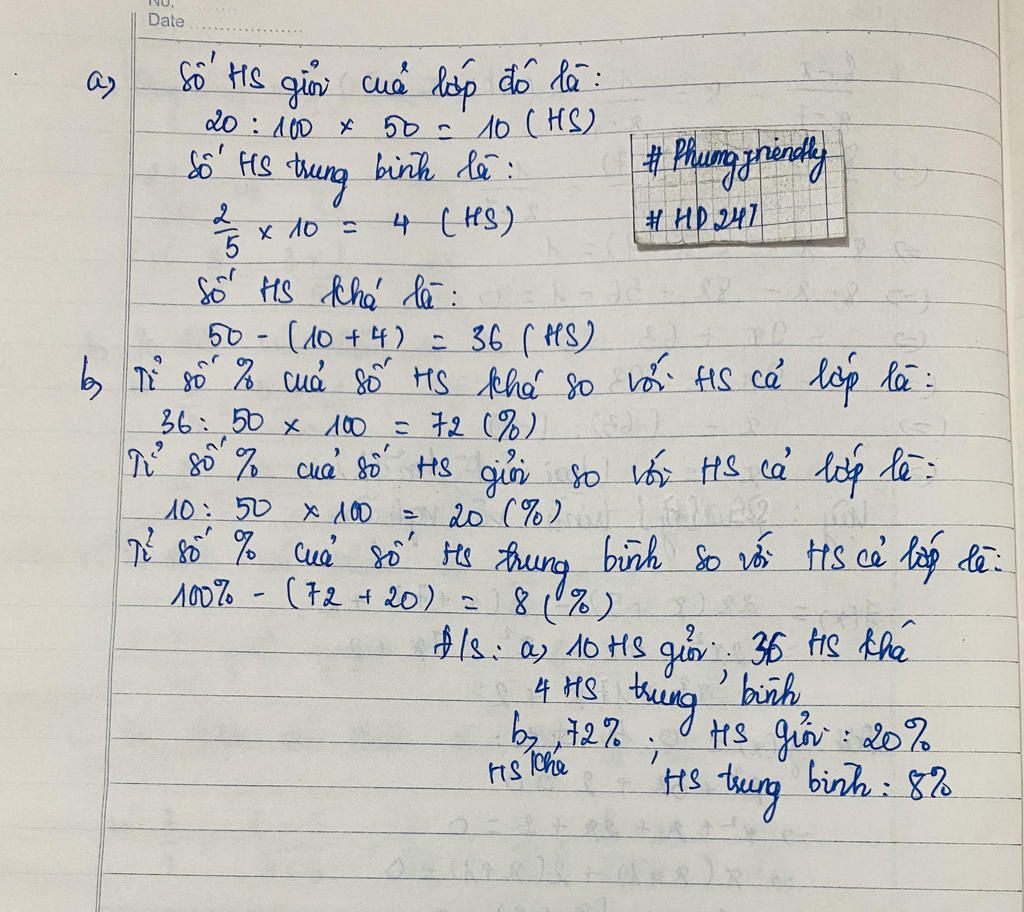 No.
Date
a, Số HS giỏi của lớp đó là:
20 : 100 × 50 = 10 (HS)
Số HS trung bình là:
2/5 × 10 = 4 (HS)
# Phungfriendly
# HD247
Số HS khá là:
50 - (10 + 4) = 36 (HS)
b, Tỉ số % của số HS khá so với HS cả lớp là:
36 : 50 × 100 = 72 (%)
Tỉ số % của số HS giỏi so với HS cả lớp là:
10 : 50 × 100 = 20 (%)
Tỉ số % của số HS trung bình so với HS cả lớp là:
100% - (72 + 20) = 8 (%)
Đ/S: a, 10 HS giỏi; 36 HS khá
4 HS trung bình
b, 72% ; HS giỏi : 20%
HS khá ; HS trung bình : 8%